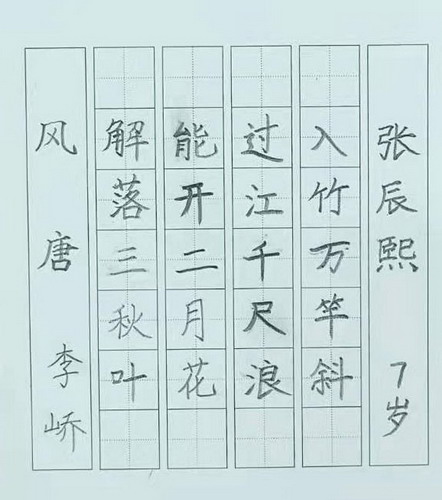 风 唐 李峤
解落三秋叶
能开二月花
过江千尺浪
入竹万竿斜
张辰熙 7岁